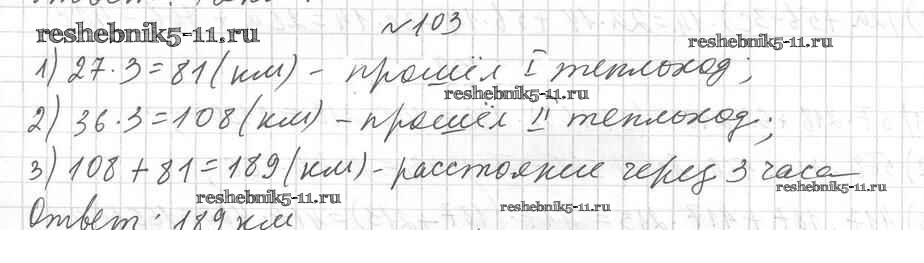 №103
reshebnik5-11.ru
reshebnik5-11.ru
1) 27·3=81(км) - прошёл I теплоход;
reshebnik5-11.ru
2) 36·3=108(км) - прошёл II теплоход;
3) 108+81=189(км) - расстояние через 3 часа
reshebnik5-11.ru
reshebnik5-11.ru
reshebnik5-11.ru
Ответ: 189 км